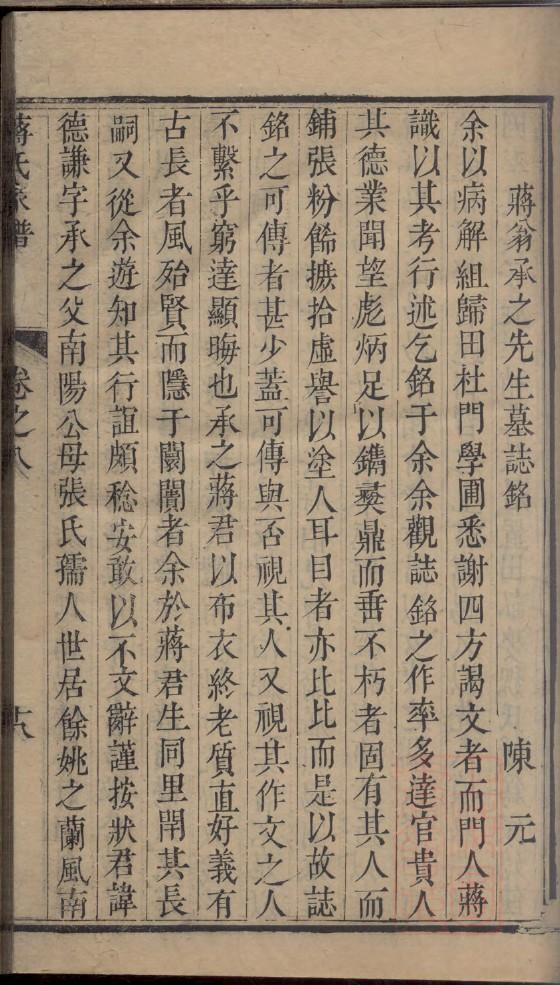 蔣翁承之先生墓誌銘 陳元
余以病解組歸田杜門學圃悉謝四方謁文者而門人蔣
識以其考行述乞銘于余余觀誌銘之作率多達官貴人
其德業聞望彪炳足以鐫彝鼎而垂不朽者固有其人而
鋪張粉餙摭拾虛譽以塗人耳目者亦比比而是以故誌
銘之可傳者甚少蓋可傳與否視其人又視其作文之人
不繫乎窮達顯晦也承之蔣君以布衣終老質直好義有
古長者風殆賢而隱于闤闠者余於蔣君生同里閈其長
嗣又從余遊知其行誼頗稔安敢以不文辭謹按狀君諱
德謙字承之父南陽公母張氏孺人世居餘姚之蘭風南
蔣氏家譜 卷之八 十八